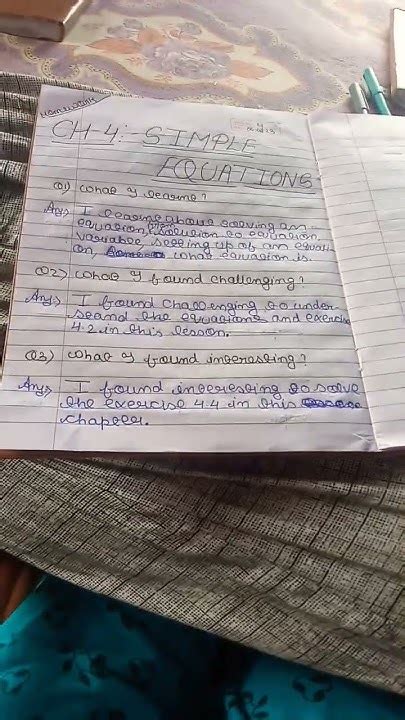 Homework
CH-4:- SIMPLE
EQUATIONS
Q1) What I learnt?
Ans) I learnt about solving an
equation, solution to equation,
variable, setting up of an equati
on, what equation is.
Q2) What I found challenging?
Ans) I found challenging to under
stand the equations and exercise
4.2 in this lesson.
Q3) What I found interesting?
Ans) I found interesting to solve
the exercise 4.4 in this
chapter.